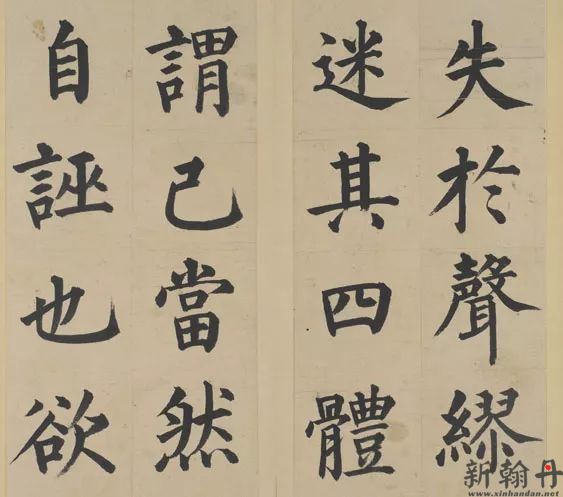 失於聲繆
迷其四體
謂己當然
自誣也欲
新翰丹
www.xinhandan.net